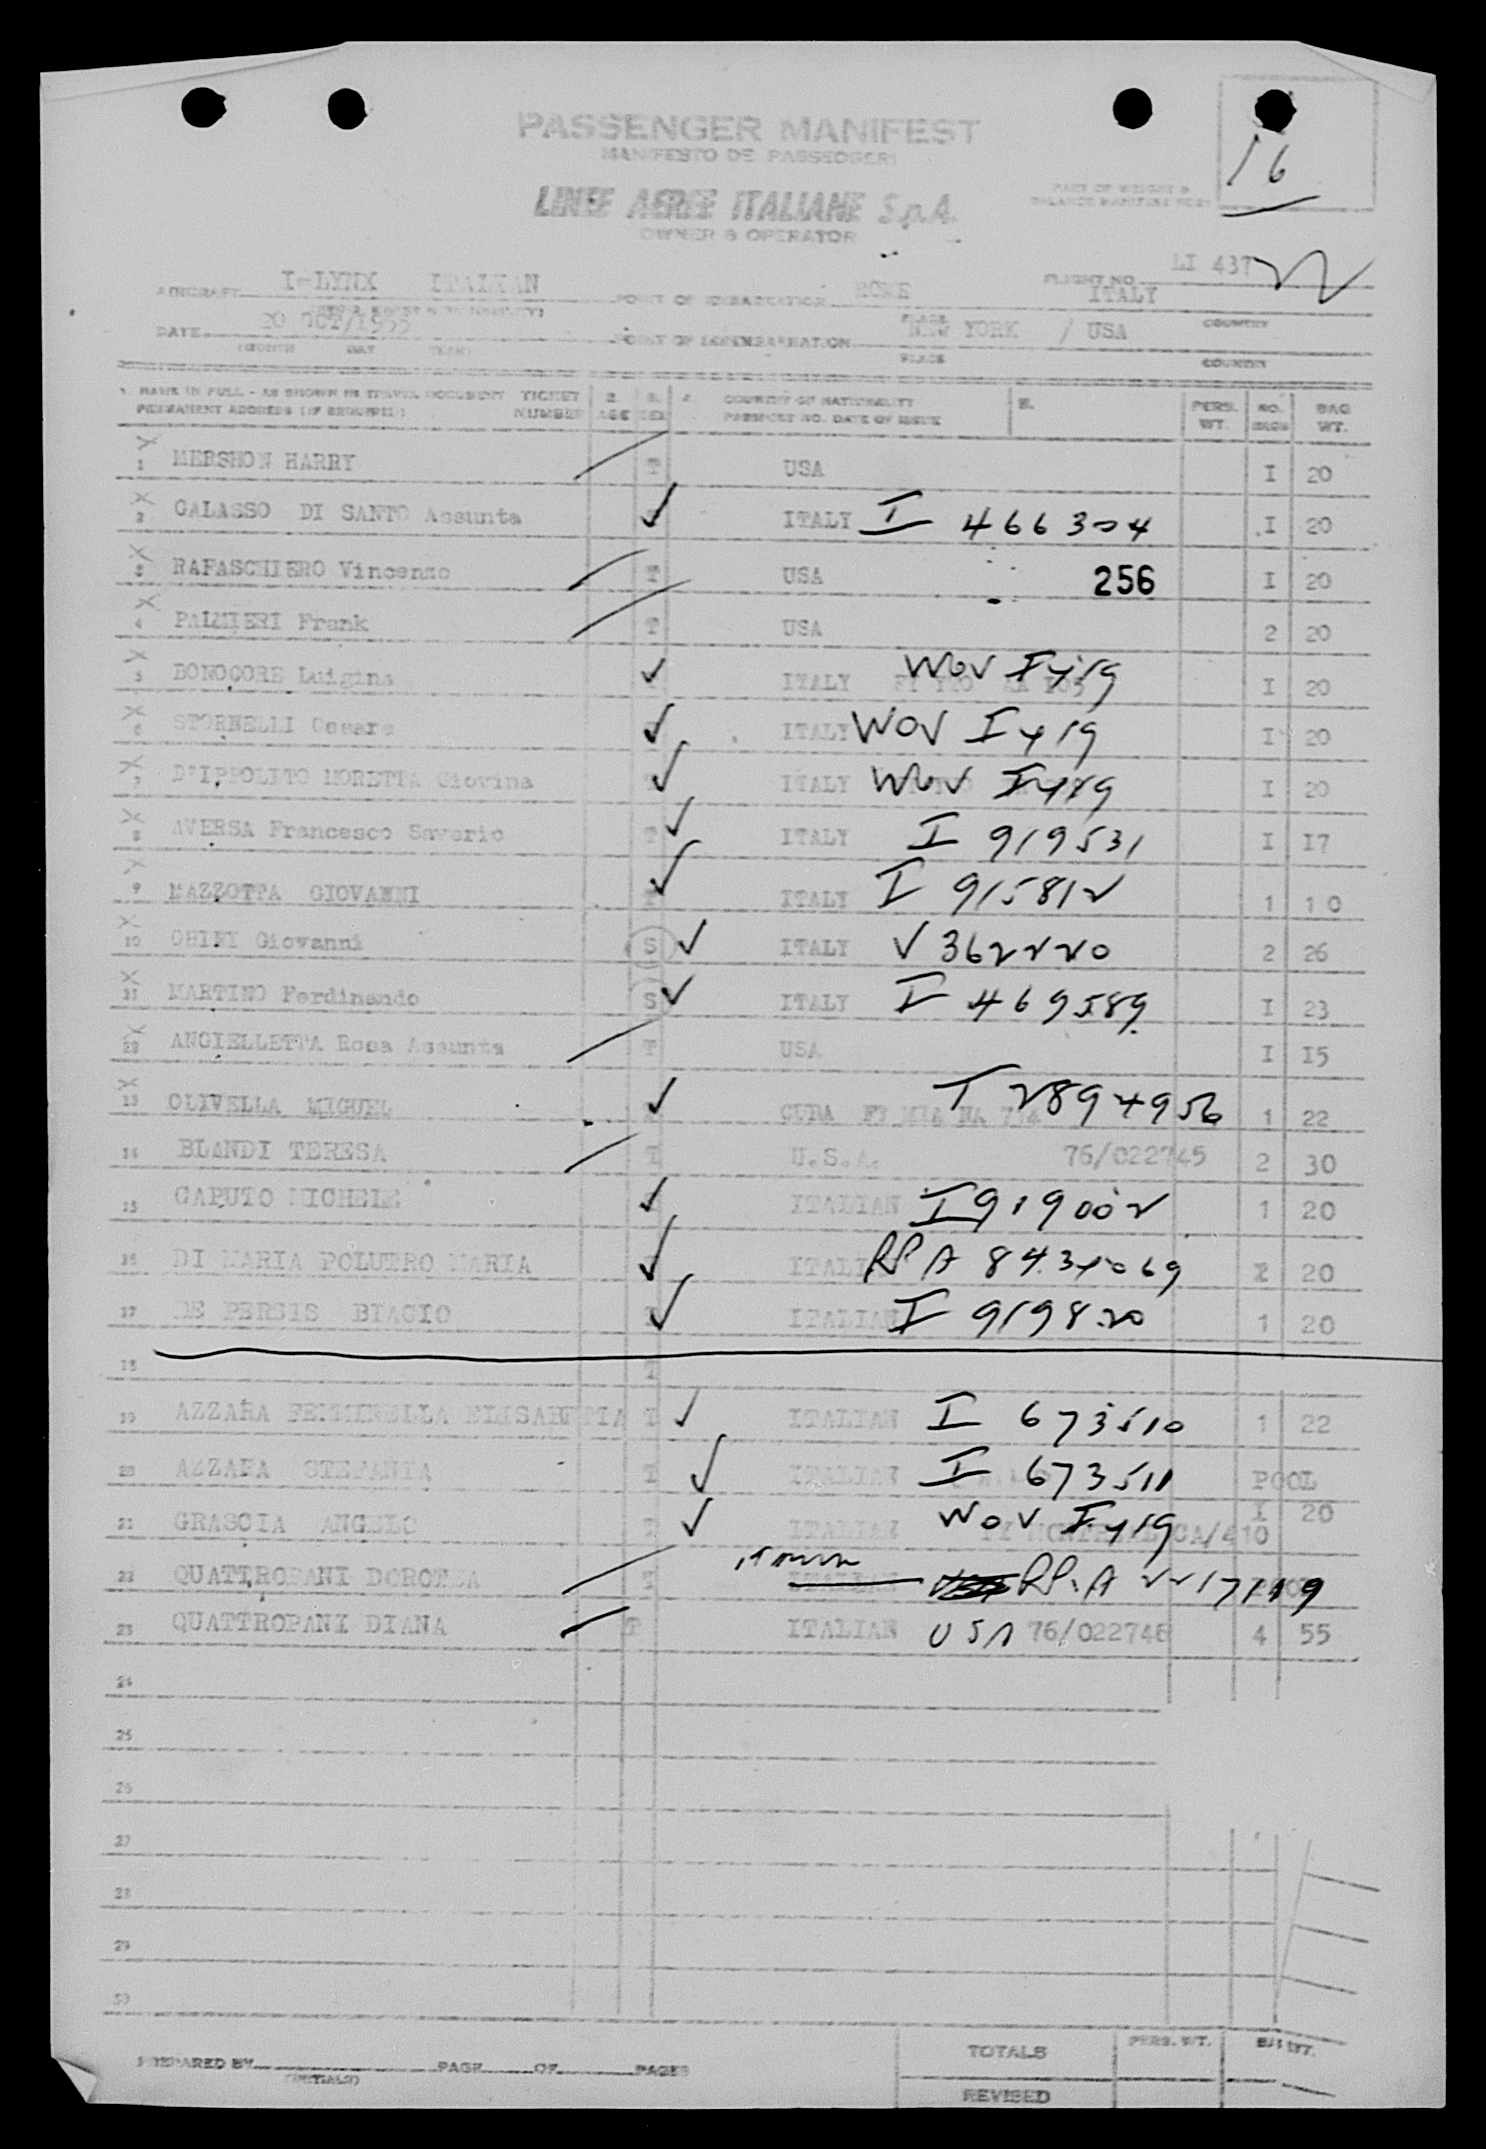 16
PASSENGER MANIFEST
MANIFESTO DE PASSEGGERI
PART OF WEIGHT &
LINEE AEREE ITALIANE S.p.A.
OWNER & OPERATOR
AIRCRAFT I-LYNX ITALIAN POINT OF EMBARKATION ROME ITALY FLIGHT NO. LI 437
PLACE COUNTRY
DATE 20 OCT/1955 POINT OF DISEMBARKATION NEW YORK / USA
MONTH DAY YEAR PLACE COUNTRY
1. NAME IN FULL - AS SHOWN IN TRAVEL DOCUMENT TICKET 2. 3. 4. COUNTRY OF NATIONALITY 5. PERS. NO. BAG
PERMANENT ADDRESS (IF REQUIRED) NUMBER AGE SEX PASSPORT NO. DATE OF ISSUE WT. WT.
1 MERSHON HARRY T USA I 20
2 GALASSO DI SANTO Assunta ITALY I 466304 I 20
3 RAFASCHIERO Vincenzo T USA 256 I 20
4 PALMIERI Frank T USA 2 20
5 BONOCORE Luigina ITALY WOV I I 20
6 STORNELLI Cesare ITALY WOV I I 20
7 D'IPPOLITO MORETTA Giovina ITALY WOV I I 20
8 AVERSA Francesco Saverio T ITALY I 919531 I I7
9 MAZZOTTA GIOVANNI ITALY I 915812 1 10
10 Giovanni S ITALY V 362220 2 26
11 MARTINO Ferdinando S ITALY I 469589 I 23
ANGIELLETTA Rosa Assunta T USA I I5
13 OLIVELLA MIGUEL CUBA T 2894956 1 22
14 BLANDI TERESA T U.S.A. 76/022745 2 30
15 CAPUTO MICHELE ITALIAN I 919002 1 20
16 DI MARIA POLUTRO MARIA RP A 20
17 DE PERSIS BIAGIO ITALIAN I 919820 1 20
18 T
19 AZZARA FEMMINELLA ELISABETTA T ITALIAN I 673510 1 22
20 AZZARA STEFANIA T ITALIAN I 673511 POOL
21 GRASCIA ANGELO T ITALIAN WOV I I 20
22 QUATTROPANI DOROTEA T RP.A
23 QUATTROPANI DIANA T ITALIAN USA 76/022746 4 55
24
25
26
27
28
29
30
PREPARED BY PAGE OF PAGES TOTALS PERS. WT.
(INITIALS)
REVISED